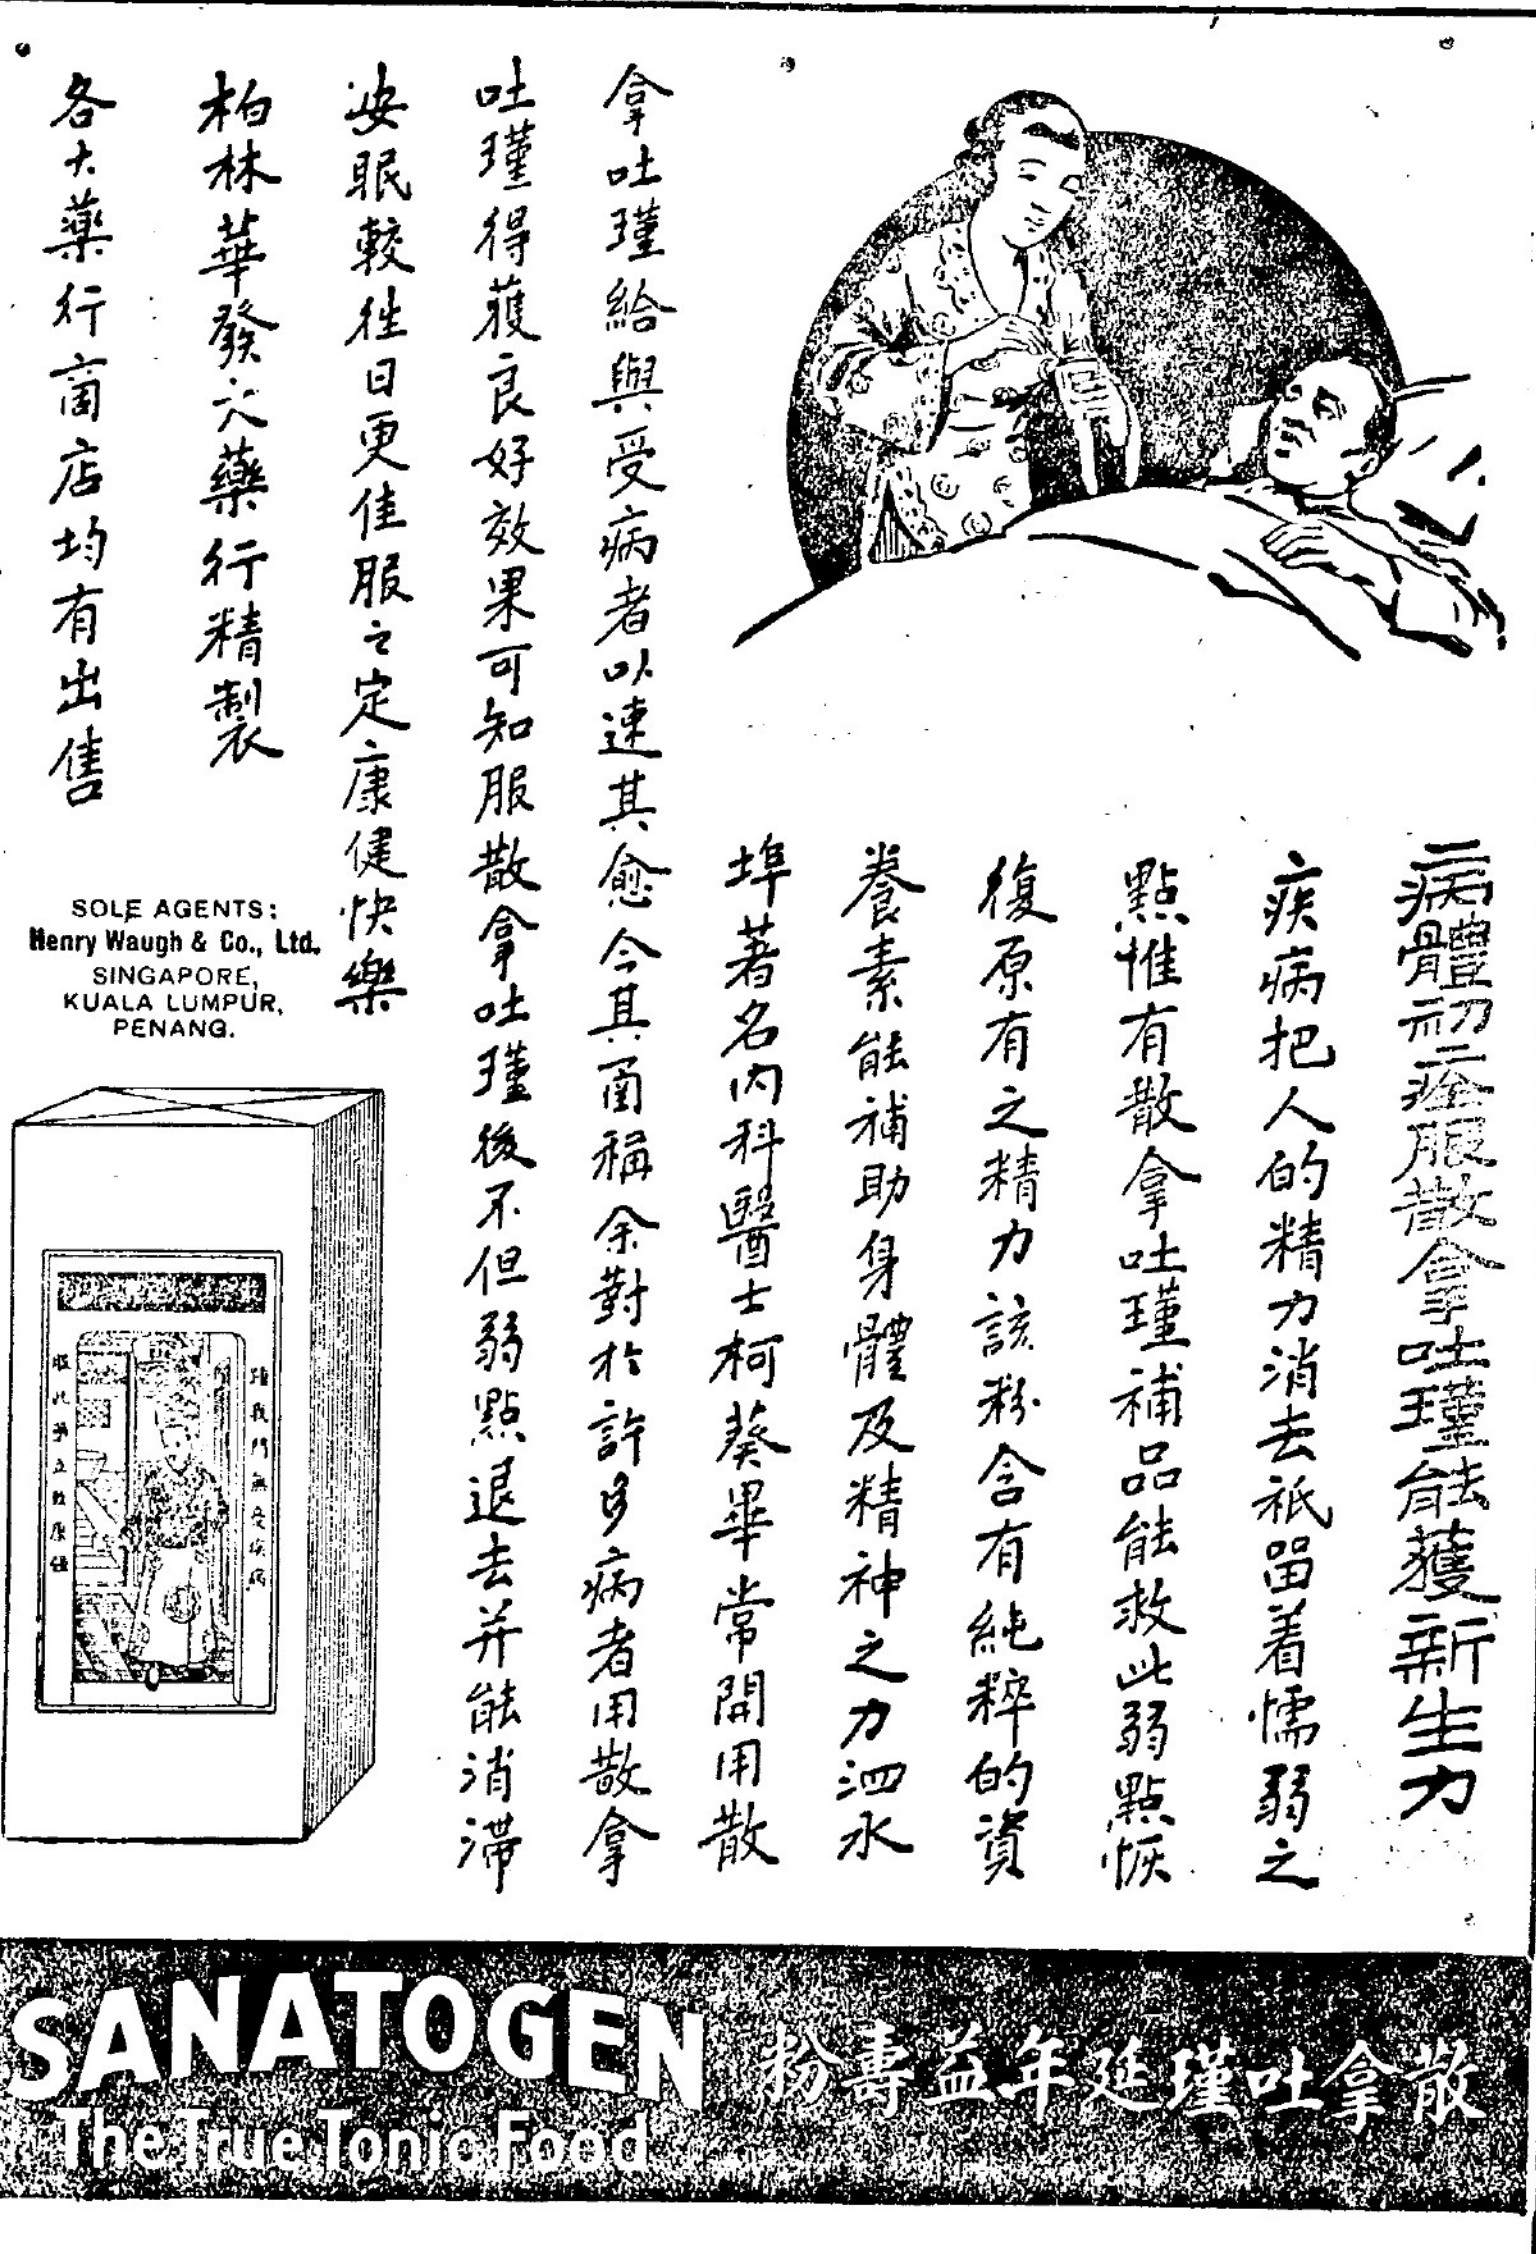 病體初痊服散拿吐瑾能獲新生力
疾病把人的精力消去祇留着懦弱之
點惟有散拿吐瑾補品能救此弱點恢
復原有之精力該粉含有純粹的資
養素能補助身體及精神之力泗水
埠著名內科醫士柯葵畢常開用散
拿吐瑾給與受病者以速其愈今其函稱余對於許多病者用散拿
吐瑾得獲良好效果可知服散拿吐瑾後不但弱點退去并能消滯
安眠較往日更佳服之定康健快樂
柏林華發大藥行精製
各大藥行商店均有出售
SOLE AGENTS:
Henry Waugh & Co., Ltd.
SINGAPORE,
KUALA LUMPUR,
PENANG.
我門無受疾病
服此
SANATOGEN
The True Tonic Food
散拿吐瑾延年益壽粉